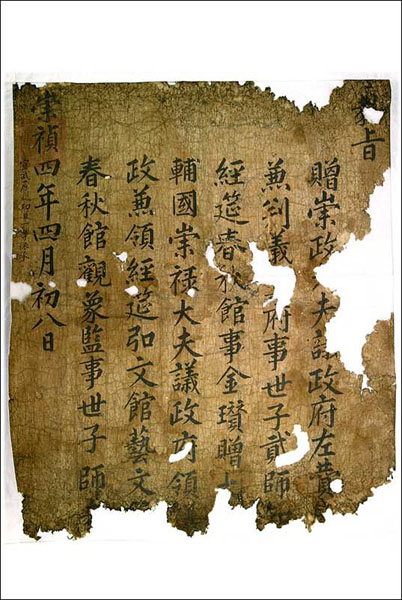 旨
贈崇政夫議政府左贊
兼判義府事世子貳師
經筵春秋館事金瓚贈
輔國崇祿大夫議政府領
政兼領經筵弘文館藝文
春秋館觀象監事世子師
崇禎四年四月初八日